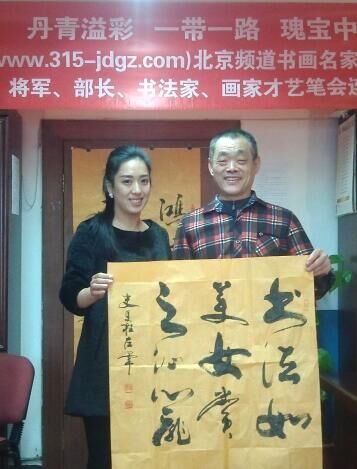 丹青溢彩 一带一路 瑰宝中
www.315-jdgz.com)北京频道书画名家
将军、部长、书法家、画家才艺笔会
鸿
书法如
美女赏
之沁心